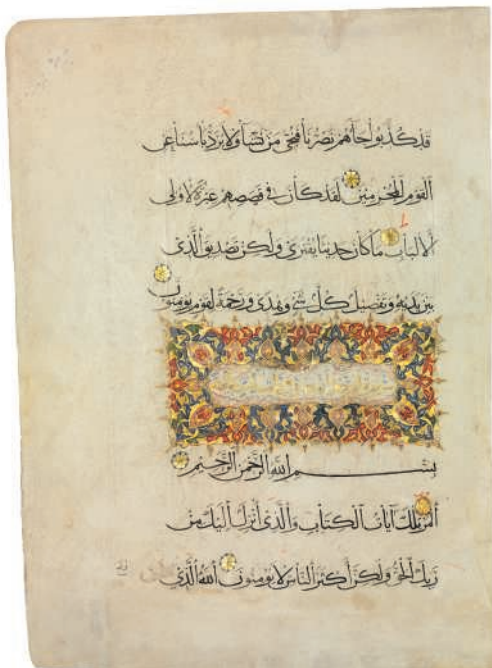 قَدْ كُذِبُوا جَاَهُمْ نَصْرُنَا فَنُجِّيَ مَنْ نَشَا وَلَا يُرَدُّ بَاْسُنَا عَنِ
الْقَوْمِ الْمُجْرِمِينَ لَقَدْ كَانَ فِي قَصَصِهِمْ عِبْرَةٌ لِاُولِي
الْاَلْبَابِ مَا كَانَ حَدِيثًا يُفْتَرَى وَلَكِنْ تَصْدِيقَ الَّذِي
بَيْنَ يَدَيْهِ وَتَفْصِيلَ كُلِّ شَيْ وَهُدًى وَرَحْمَةً لِقَوْمٍ يُومِنُونَ
بِسْمِ اللَّهِ الرَّحْمَنِ الرَّحِيمِ
الٓمٓر تِلْكَ آيَاتُ الْكِتَابِ وَالَّذِي اُنْزِلَ اِلَيْكَ مِنْ
رَبِّكَ الْحَقُّ وَلَكِنَّ اَكْثَرَ النَّاسِ لَا يُومِنُونَ اللَّهُ الَّذِي